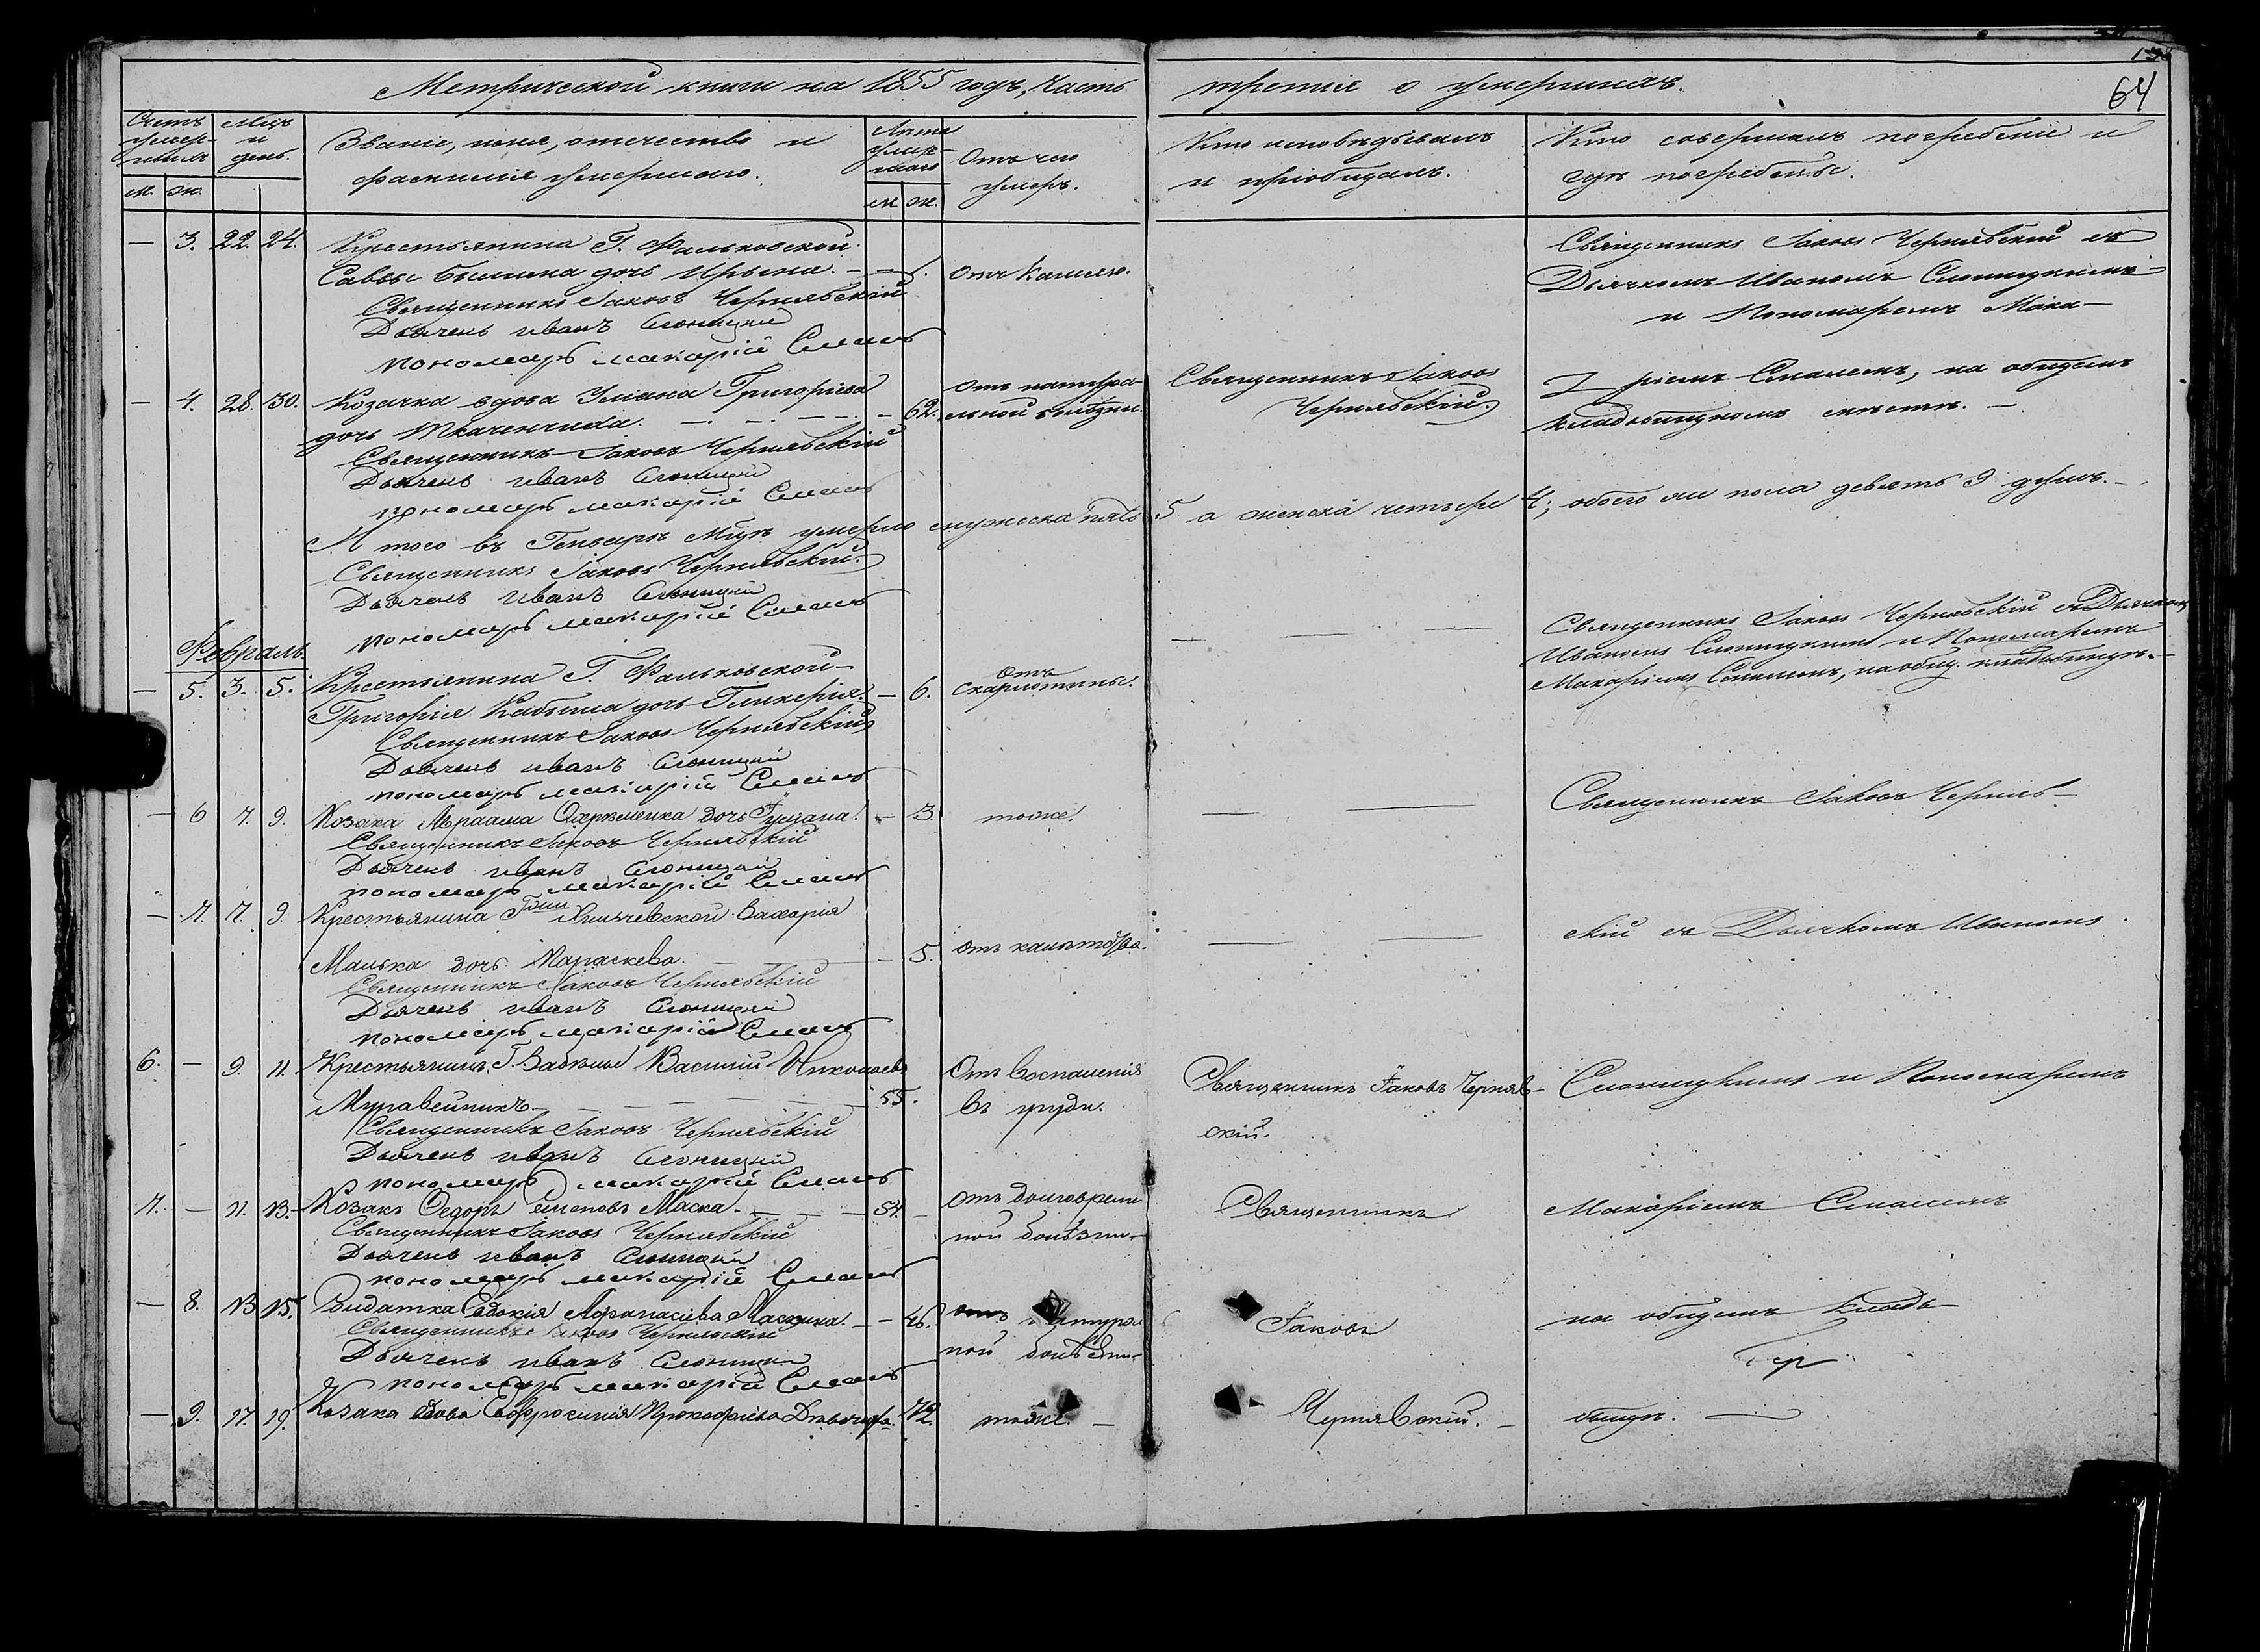 Метрической книги на 1855 годъ, часть третія о умершихъ.
64
Счетъ умер-шихъ
Мцъ и день.
Званіе, имя, отечество и фамилія умершаго.
Лѣта умер-шаго
Отъ чего умеръ.
Кто исповѣдывалъ и пріобщалъ.
Кто совершалъ погребеніе и гдѣ погребены.
м. ж.
м ж.
— 3. 22. 24. Крестьянина Г. Фальковской
Саввы дочь Ирина. — 
Отъ кашлю.
Священникъ Іаковъ Чернявскій
Дьячекъ Иванъ Слоницкій
Пономарь Макарій Смаль
Священникъ Іаковъ Чернявскій съ
Дьячкомъ Иваномъ Слоницкимъ
и Пономаремъ Мака-
— 4. 28. 30. Козачка вдова Уліана Григоріева
дочь Ткаченчиха. — 62.
Отъ натура-
льной болѣзни.
Священникъ Іаковъ
Чернявскій.
ріемъ Смалемъ, на общемъ
кладбищномъ мѣстѣ. —
Священникъ Іаковъ Чернявскій
Дьячекъ Иванъ Слоницкій
Пономарь Макарій Смаль
И того въ Генварѣ мцѣ умерло мужеска пять 5 а женска четыре 4; обоего же пола девять 9 душъ. —
Священникъ Іаковъ Чернявскій.
Дьячекъ Иванъ Слоницкій
Пономарь Макарій Смаль
Февраль
— 5. 3. 5. Крестьянина Г. Фальковской
Григорія дочь Гликерія. — 6.
Отъ
скарлотины.
Священникъ Іаковъ Чернявскій съ Дьячкомъ
Иваномъ Слоницкимъ и Пономаремъ
Макаріемъ Смалемъ, на общ. кладбищѣ. —
Священникъ Іаковъ Чернявскій
Дьячекъ Иванъ Слоницкій
Пономарь Макарій Смаль
— 6 7. 9. Козака Авраама дочь — 3.
тоже.
Священникъ Іаковъ Черняв-
Священникъ Іаковъ Чернявскій
Дьячекъ Иванъ Слоницкій
Пономарь Макарій Смаль
— 7. 7. 9. Крестьянина Гжи Захарія
Малька дочь Параскева. — 5.
скій съ Дьячкомъ Иваномъ
Священникъ Іаковъ Чернявскій
Дьячекъ Иванъ Слоницкій
Пономарь Макарій Смаль
6. — 9. 11. Крестьянинъ Г. Забѣлы Василій Николаевъ
Муравейникъ. — 55.
Отъ воспаленія
въ груди.
Священникъ Іаковъ Черняв-
скій.
Слоницкимъ и Пономаремъ
Священникъ Іаковъ Чернявскій
Дьячекъ Иванъ Слоницкій
Пономарь Макарій Смаль
7. — 11. 13. Козакъ Ѳедоръ Семеновъ Маска. — 54.
Отъ долговремен
ной болѣзни.
Священникъ
Макаріемъ Смалемъ
Священникъ Іаковъ Чернявскій
Дьячекъ Иванъ Слоницкій
Пономарь Макарій Смаль
— 8. 13 15. Солдатка Евдокія Афанасіева — 46.
отъ натурал
ной болѣзни
Іаковъ
на общемъ клад-
Священникъ Іаковъ Чернявскій
Дьячекъ Иванъ Слоницкій
Пономарь Макарій Смаль
— 9. 17. 19. Козака вдова Евфросинія Прокофіева 72.
тоже. —
Чернявскій. —
бищѣ. —